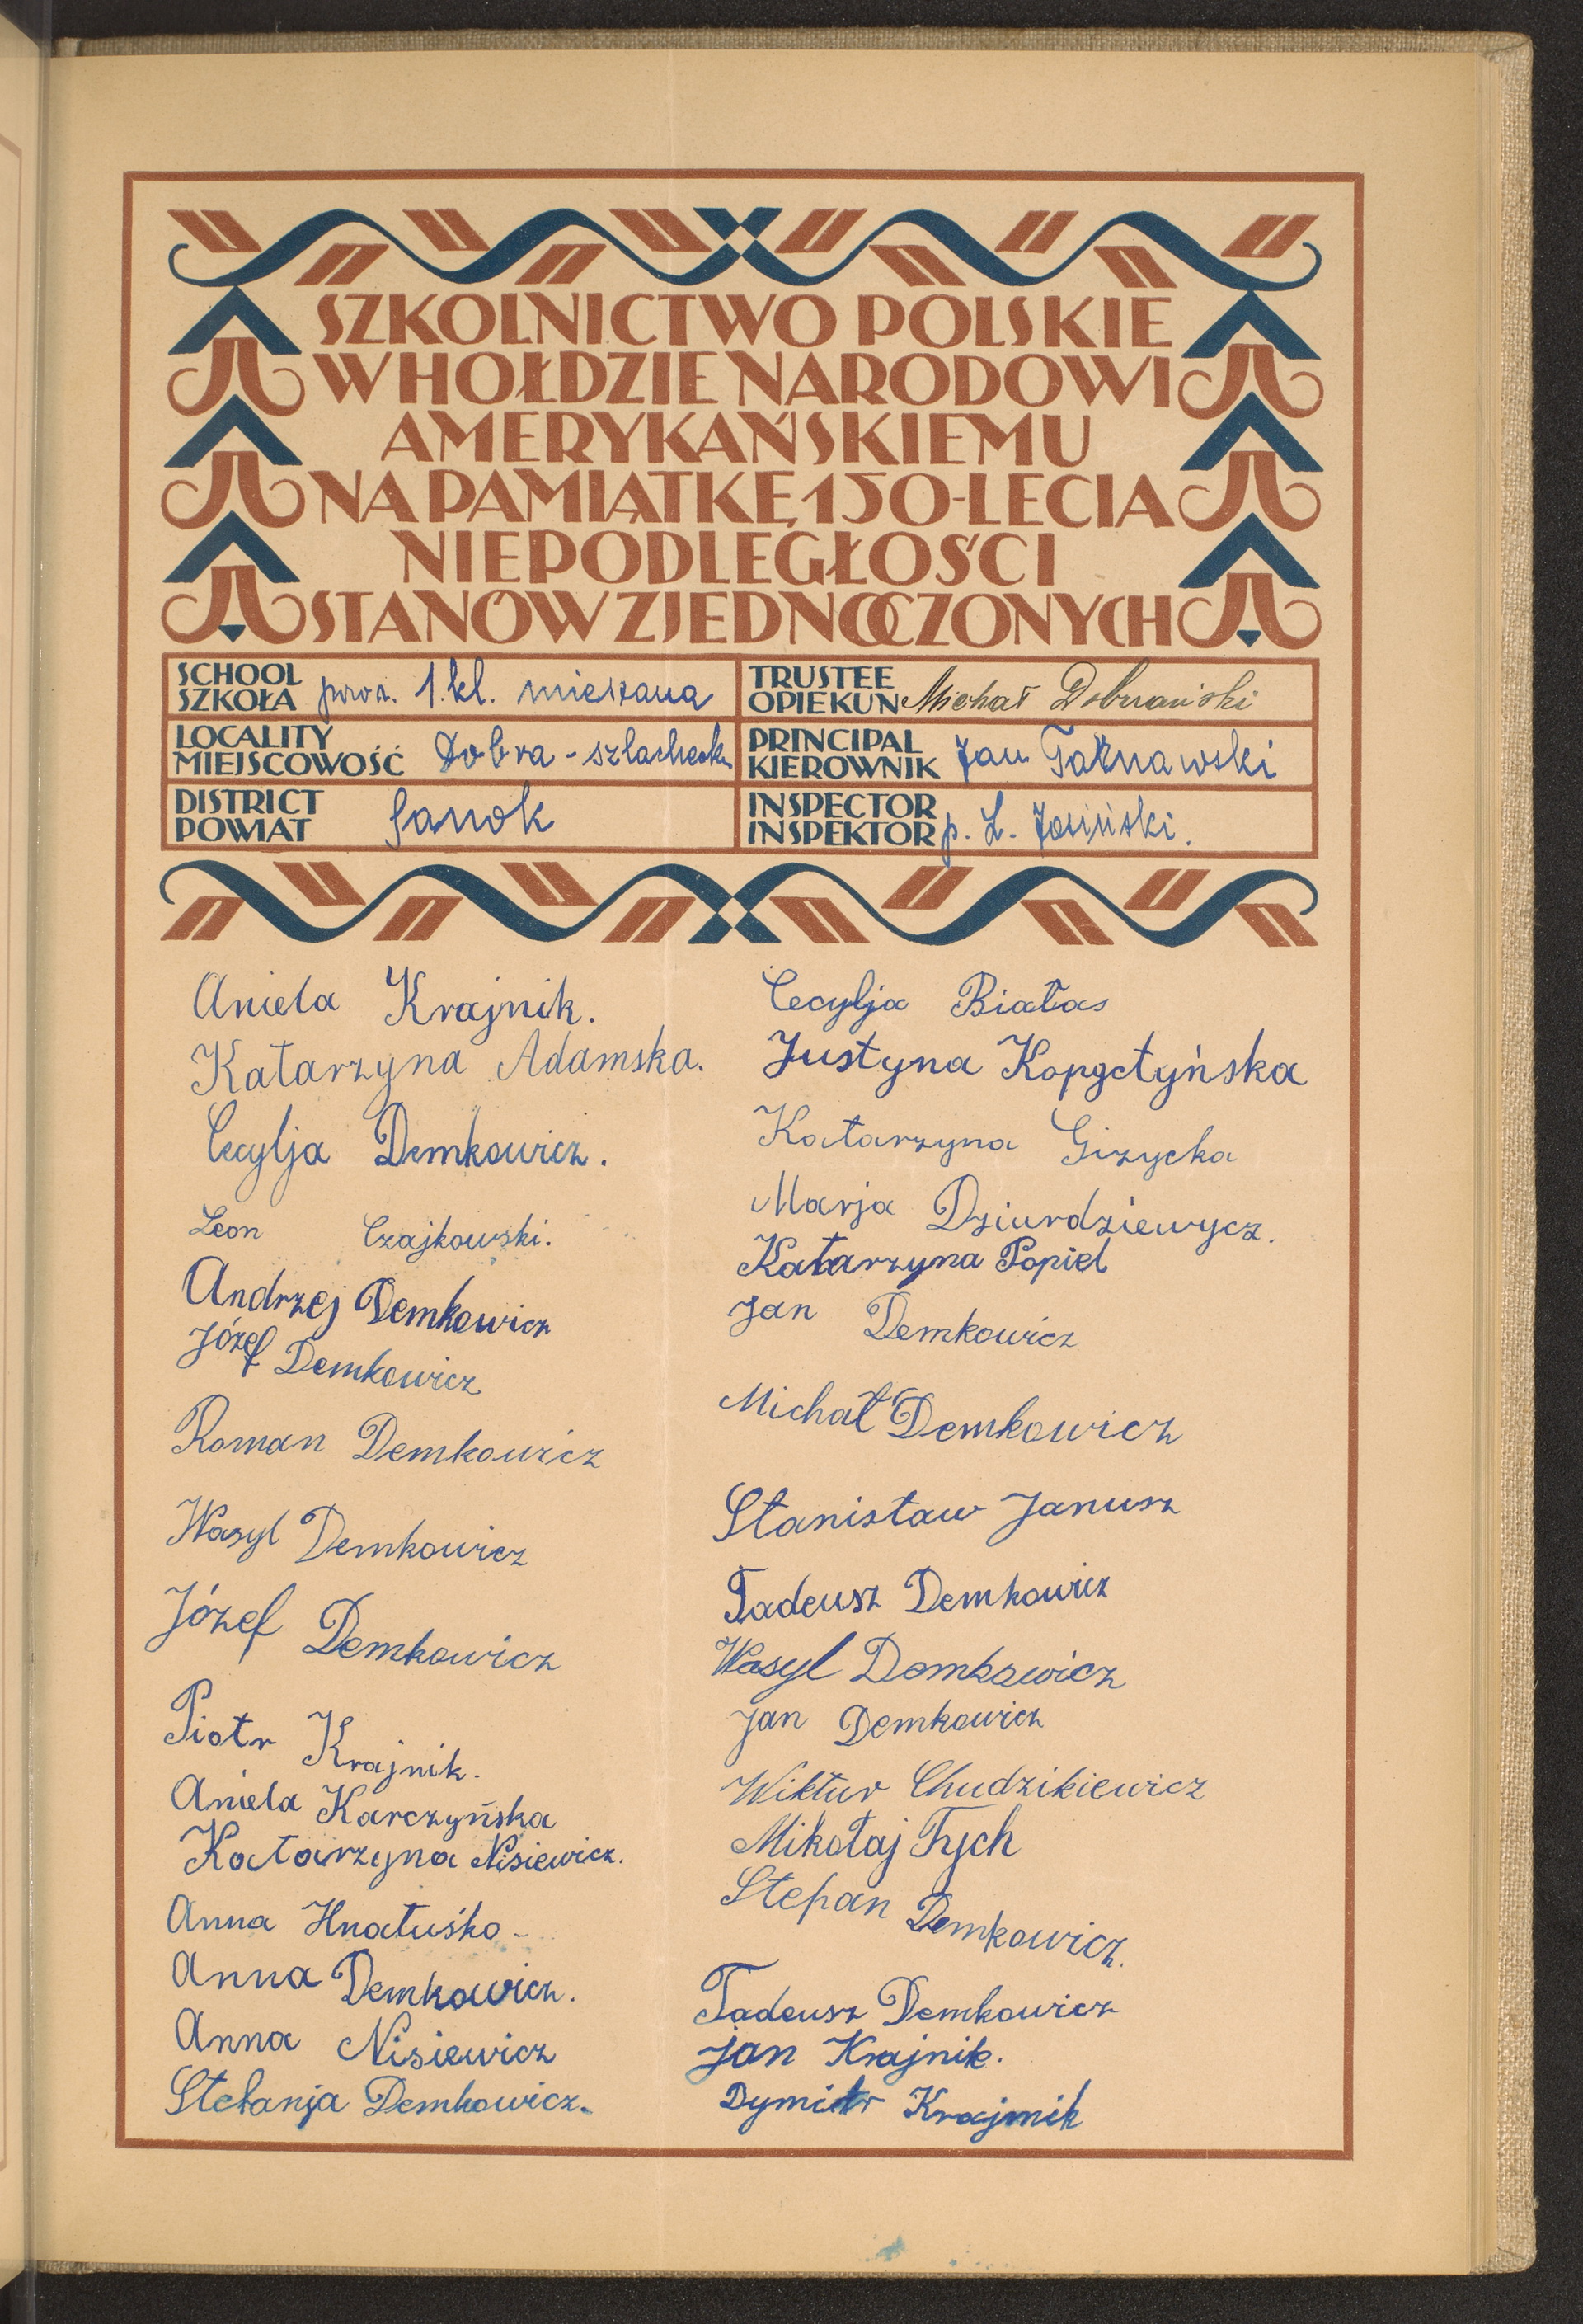 SZKOLNICTWO POLSKIE
W HOŁDZIE NARODOWI
AMERYKAŃSKIEMU
NA PAMIĄTKĘ 150-LECIA
NIEPODLEGŁOŚCI
STANÓW ZJEDNOCZONYCH
SCHOOL
SZKOŁA
1. kl. mieszana
TRUSTEE
OPIEKUN
Michał Dobrzański
LOCALITY
MIEJSCOWOŚĆ
Dobra - szlachecka
PRINCIPAL
KIEROWNIK
Jan Tarnawski
DISTRICT
POWIAT
Sanok
INSPECTOR
INSPEKTOR
p. L. Josiński.
Aniela Krajnik.
Katarzyna Adamska.
Cecylja Demkowicz.
Leon Czajkowski.
Andrzej Demkowicz
Józef Demkowicz
Roman Demkowicz
Wasyl Demkowicz
Józef Demkowicz
Piotr Krajnik.
Aniela Karczyńska
Katarzyna Nisiewicz.
Anna Hnatuśko
Anna Demkowicz.
Anna Nisiewicz
Stefanja Demkowicz.
Cecylja Białas
Justyna Kopystyńska
Katarzyna Giżycka
Marja Dziurdziewycz.
Katarzyna Popiel
Jan Demkowicz
Michał Demkowicz
Stanisław Janusz
Tadeusz Demkowicz
Wasyl Demkowicz
Jan Demkowicz
Wiktur Chudzikiewicz
Mikołaj Tych
Stepan Demkowicz.
Tadeusz Demkowicz
Jan Krajnik.
Dymitr Krajnik